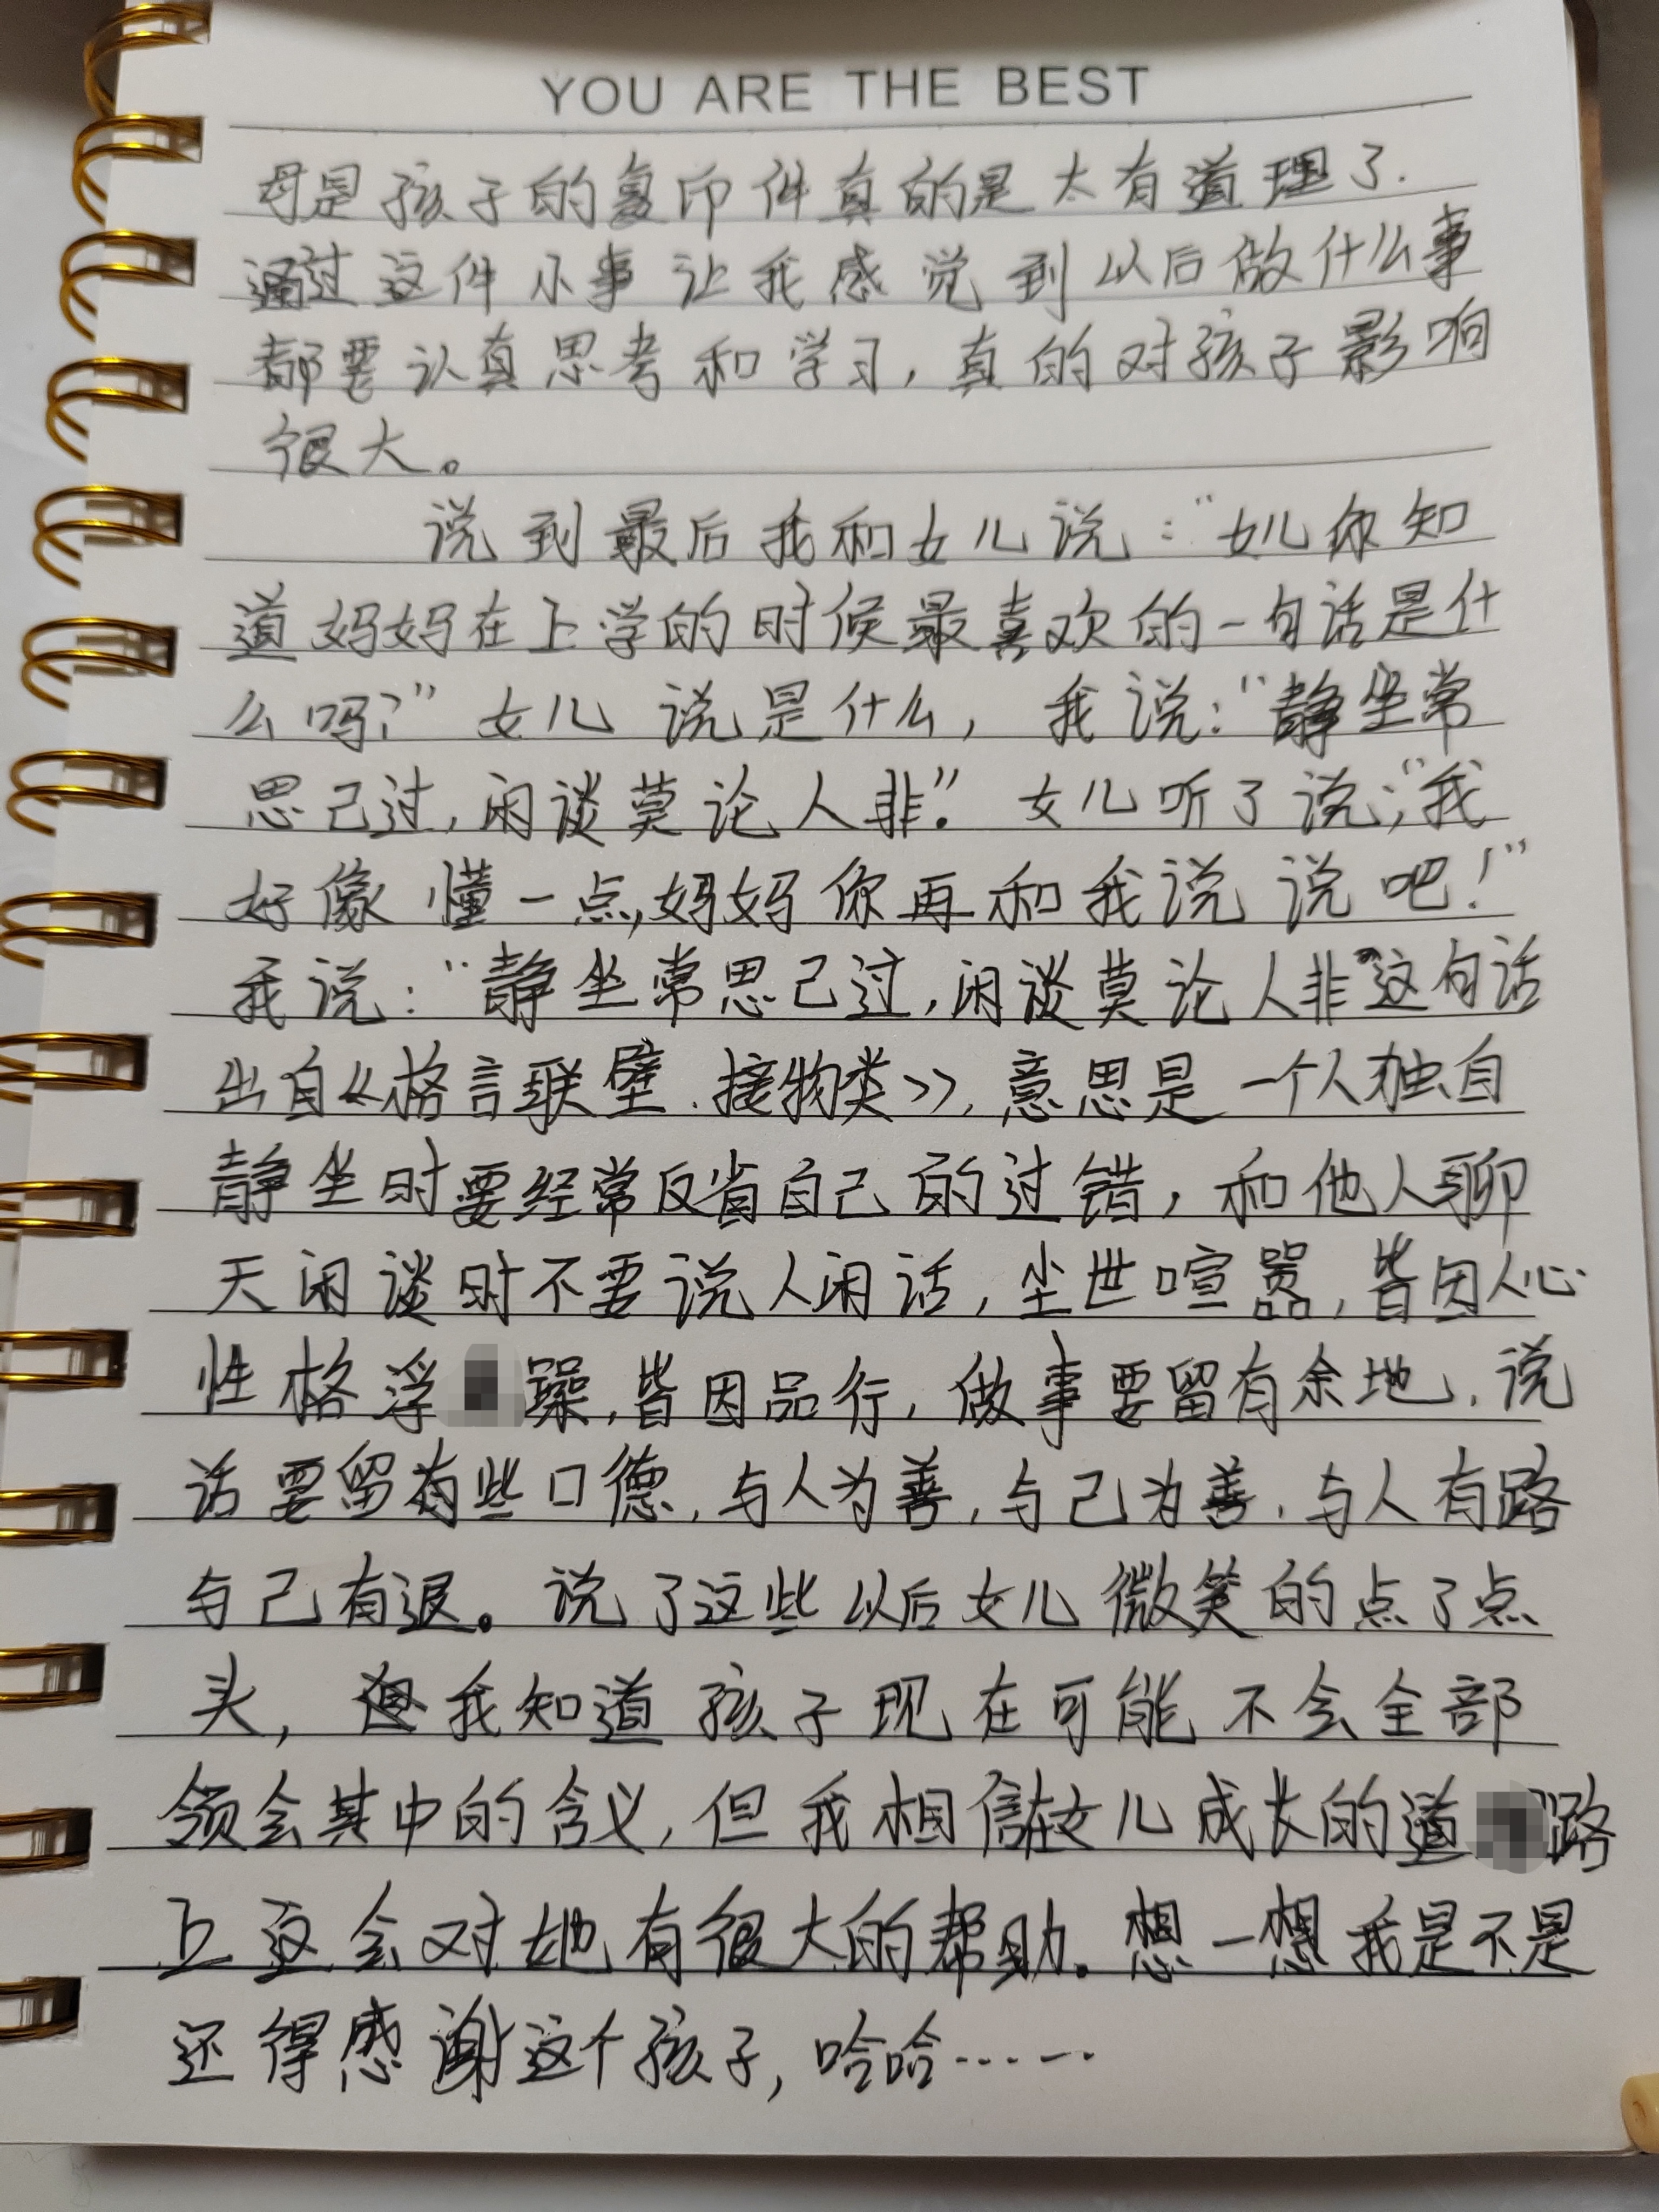 YOU ARE THE BEST
母是孩子的复印件真的是太有道理了.
通过这件小事让我感觉到以后做什么事
都要认真思考和学习,真的对孩子影响
很大。
说到最后我和女儿说:“女儿你知
道妈妈在上学的时候最喜欢的一句话是什
么吗?”女儿说是什么,我说:“静坐常
思己过,闲谈莫论人非”。女儿听了说:“我
好像懂一点,妈妈你再和我说说吧!”
我说:“静坐常思己过,闲谈莫论人非”这句话
出自《格言联壁.接物类》,意思是一个人独自
静坐时要经常反省自己的过错,和他人聊
天闲谈时不要说人闲话,尘世喧嚣,皆因人心
性格浮躁,皆因品行,做事要留有余地,说
话要留有些口德,与人为善,与己为善,与人有路
与己有退。说了这些以后女儿微笑的点了点
头,但我知道孩子现在可能不会全部
领会其中的含义,但我相信在女儿成长的道路
上这会对她有很大的帮助。想一想我是不是
还得感谢这个孩子,哈哈……